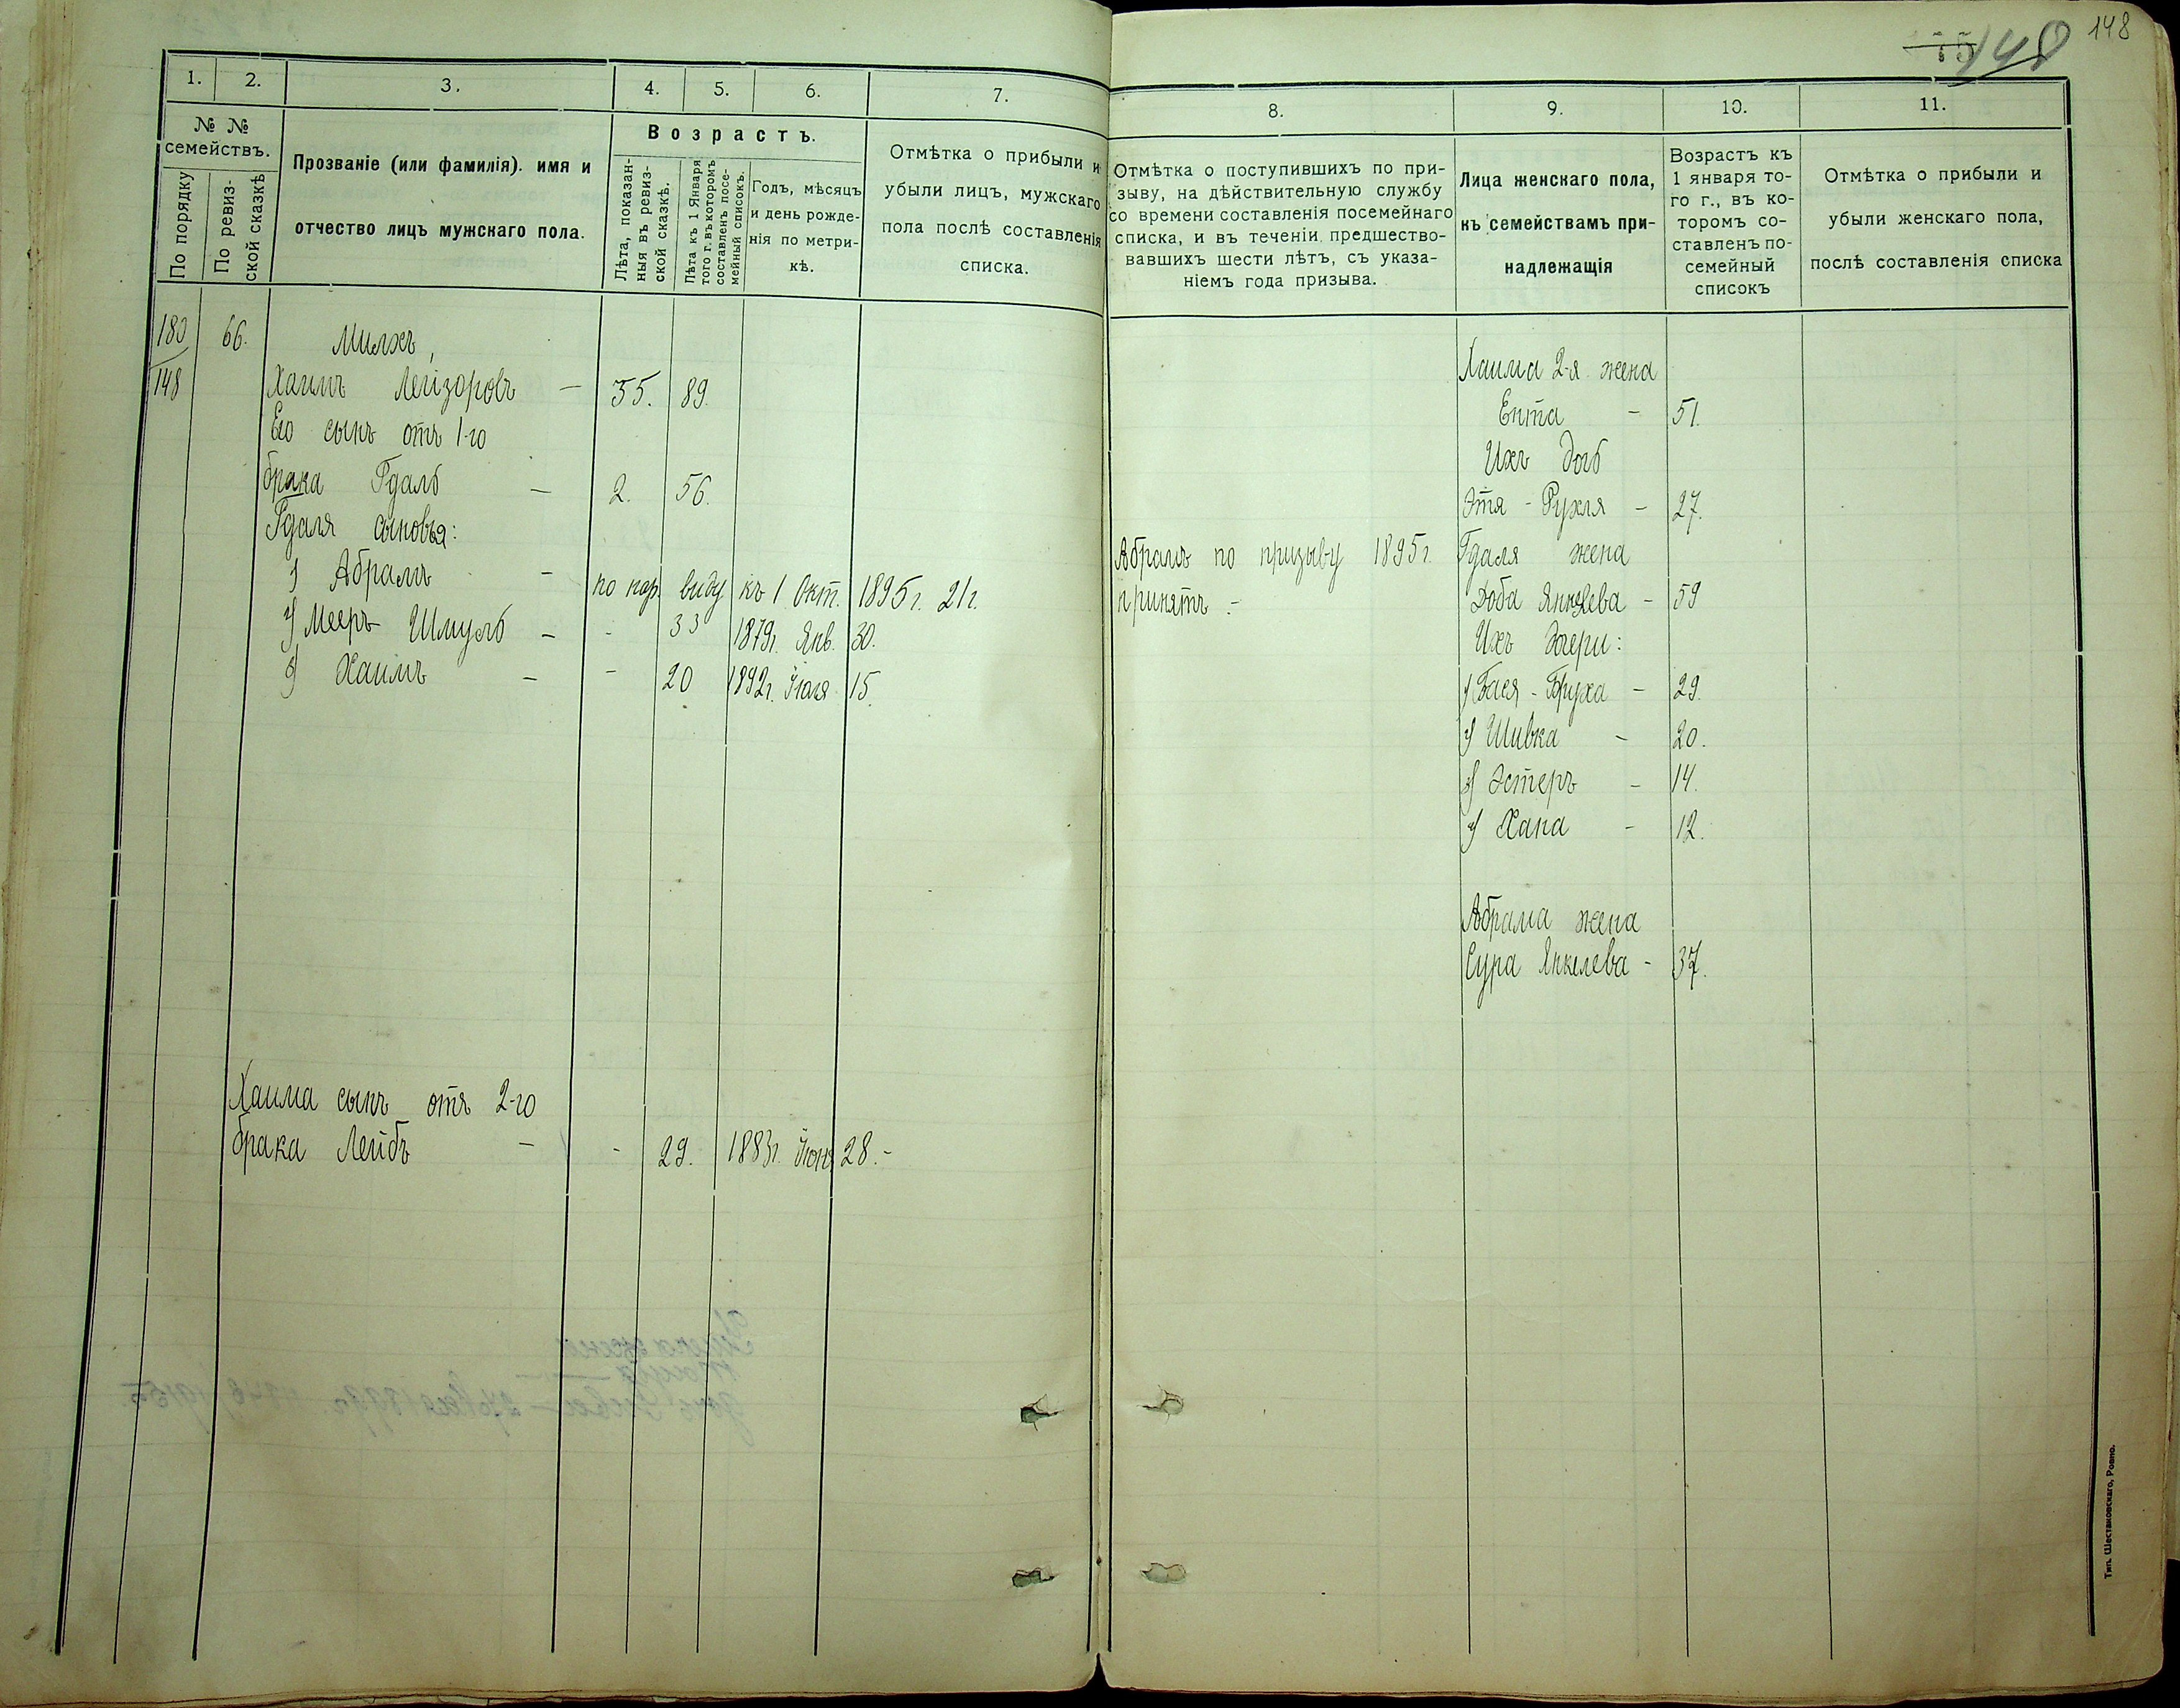 148
148
1.
2.
3.
4.
5.
6.
7.
№ №
семействъ.
По порядку
По ревиз-
ской сказкѣ
Прозваніе (или фамилія). имя и
отчество лицъ мужскаго пола.
Возрастъ.
Лѣта, показан-
ныя въ ревиз-
ской сказкѣ.
Лѣта къ 1 Января
того г. въ которомъ
составленъ посе-
мейный списокъ.
Годъ, мѣсяцъ
и день рожде-
нія по метри-
кѣ.
Отмѣтка о прибыли и
убыли лицъ, мужскаго
пола послѣ составленія
списка.
180 66. Милхъ,
148 Хаимъ Лейзоровъ — 35. 89.
Его сынъ отъ 1-го
брака Гдаль — 2. 56.
Гдаля сыновья:
1) Абрамъ — по нар. виду къ 1 Окт. 1895 г. 21 г.
2) Мееръ Шмуль — - 33 1879 г. Янв. 30.
3) Хаимъ — - 20 1892 г. Іюля 15.
Хаима сынъ отъ 2-го
брака Лейбъ — - 29. 1883 г. Іюн 28.-
8.
9.
10.
11.
Отмѣтка о поступившихъ по при-
зыву, на дѣйствительную службу
со времени составленія посемейнаго
списка, и въ теченіи предшество-
вавшихъ шести лѣтъ, съ указа-
ніемъ года призыва.
Лица женскаго пола,
къ семействамъ при-
надлежащія
Возрастъ къ
1 января то-
го г., въ ко-
торомъ со-
ставленъ по-
семейный
списокъ
Отмѣтка о прибыли и
убыли женскаго пола,
послѣ составленія списка
Хаима 2-я жена
Ента - 51.
Ихъ дочь
Этя - Рухля - 27.
Абрамъ по призыву 1895 г. Гдаля жена
принятъ.- Доба Янкелева - 59
Ихъ дочери:
1) Бася - Бруха - 29.
2) Шивка - 20.
3) Эстеръ - 14.
4) Хана - 12.
Абрама жена
Сура Янкелева - 37.
Тип. Шестаковскаго, Ровно.